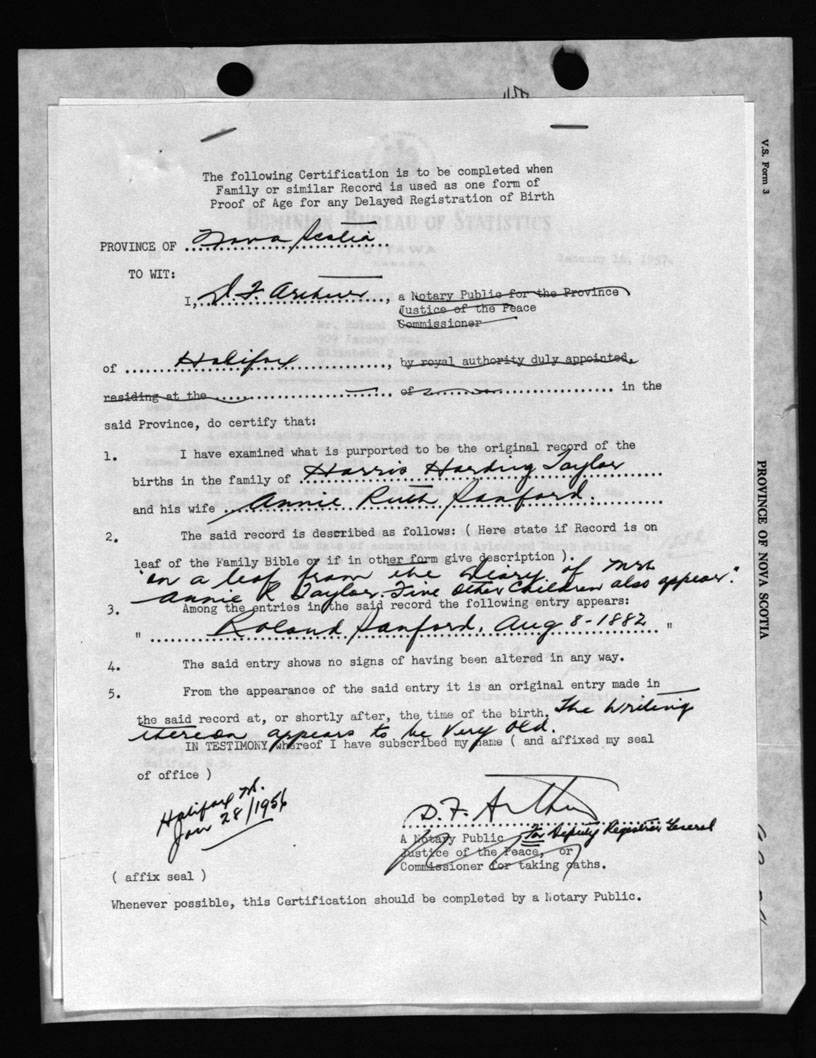 V.S. Form 3
PROVINCE OF NOVA SCOTIA
The following Certification is to be completed when
Family or similar Record is used as one form of
Proof of Age for any Delayed Registration of Birth
DOMINION BUREAU OF STATISTICS
OTTAWA
CANADA
PROVINCE OF Nova Scotia
TO WIT:
I, D. F. Archer, a Notary Public for the Province
Justice of the Peace
Commissioner
of Halifax, by royal authority duly appointed,
residing at the of in the
said Province, do certify that:
1. I have examined what is purported to be the original record of the
births in the family of Harris Harding Taylor
and his wife Annie Ruth Sanford.
2. The said record is described as follows: ( Here state if Record is on
leaf of the Family Bible or if in other form give description ).
"on a leaf from the diary of Mrs.
Annie R Taylor. Five other children also appear."
3. Among the entries in the said record the following entry appears:
" Roland Sanford, Aug 8-1882 "
4. The said entry shows no signs of having been altered in any way.
5. From the appearance of the said entry it is an original entry made in
the said record at, or shortly after, the time of the birth. The writing
thereon appears to be very old.
IN TESTIMONY whereof I have subscribed my name ( and affixed my seal
of office )
Halifax NS.
Jan 28/1956
D. F. Archer
A Notary Public For Deputy Registrar General
Justice of the Peace, or
Commissioner for taking oaths.
( affix seal )
Whenever possible, this Certification should be completed by a Notary Public.